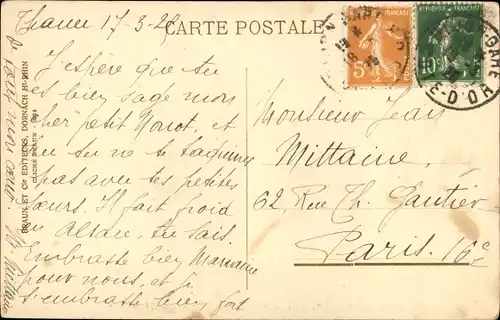 Thann 17-3-28
CARTE POSTALE
J'espère que tu
es bien sage mon
cher petit Nonot, et
que tu ne te taquines
pas avec tes petites
sœurs. Il fait froid
en Alsace, tu sais.
Embrasse bien Maman
pour nous, et je
t'embrasse bien fort
BRAUN ET Cie EDITEURS, DORNACH Ht-RHIN
CLICHÉ BRAUN
Monsieur Jean
Mittaine
62, Rue Th. Gautier
Paris. 16e
REPUBLIQUE FRANÇAISE
5c
10c
GARE
E-D'OR